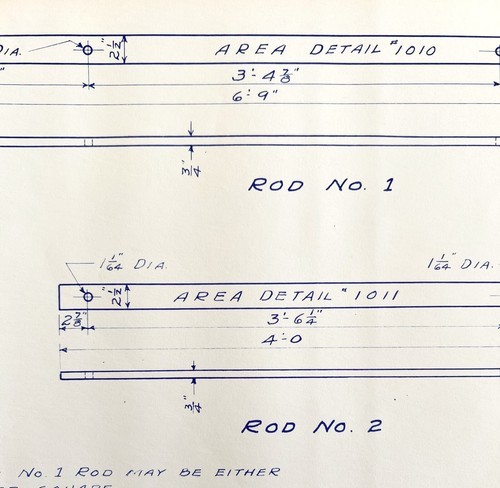 DIA. 2 1/2" AREA DETAIL #1010
" 3'-4 7/8"
6'-9"
3/4"
ROD No. 1
1 1/64" DIA. 1 1/64" DIA.
2 1/2" AREA DETAIL #1011
2 7/8" 3'-6 1/4"
4'-0
3/4"
ROD No. 2
No. 1 ROD MAY BE EITHER
SQUARE